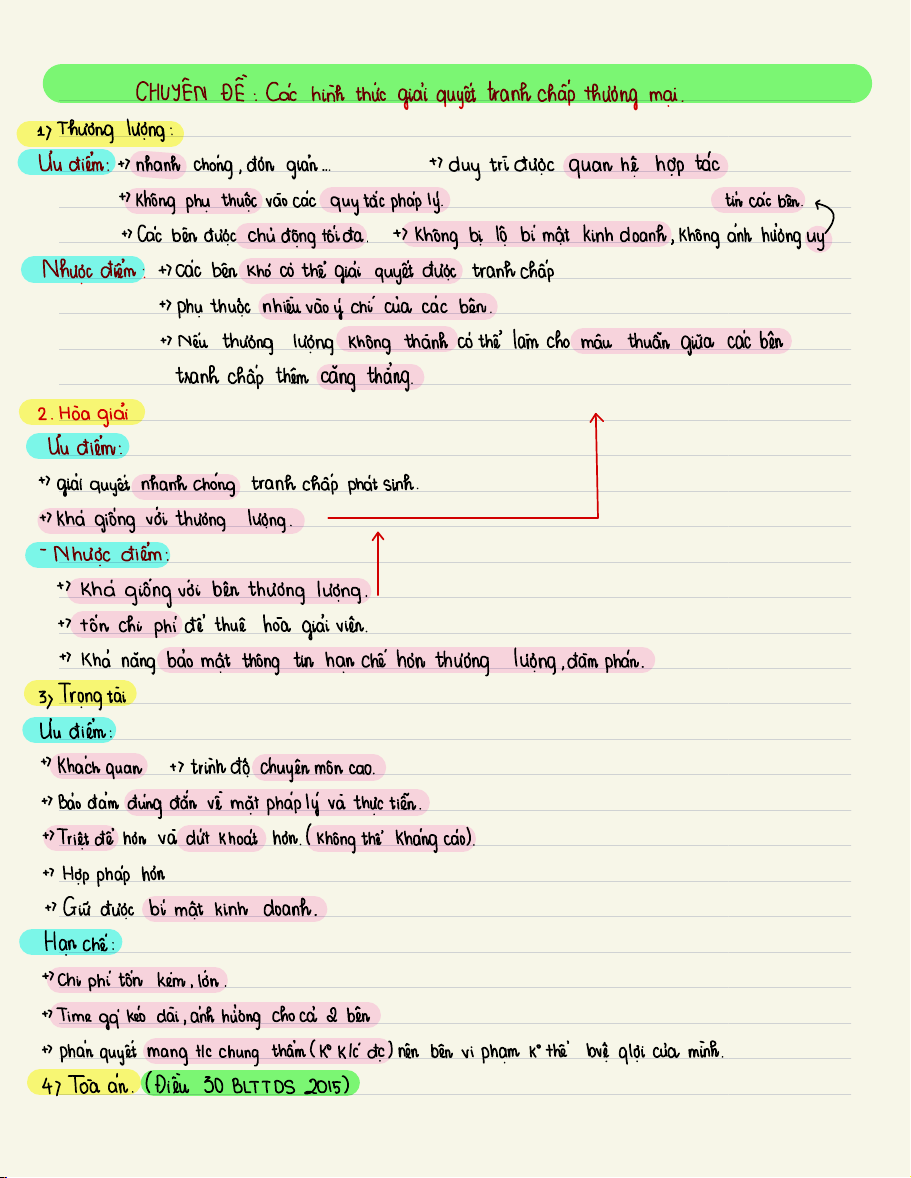 CHUYÊN ĐỀ: Các hình thức giải quyết tranh chấp thương mại.
1) Thương lượng:
Ưu điểm: +) nhanh chóng, đơn giản... +) duy trì được quan hệ hợp tác
+) Không phụ thuộc vào các quy tắc pháp lý. tín các bên.
+) Các bên được chủ động tối đa. +) Không bị lộ bí mật kinh doanh, không ảnh hưởng uy
Nhược điểm: +) các bên khó có thể giải quyết được tranh chấp
+) phụ thuộc nhiều vào ý chí của các bên.
+) Nếu thương lượng không thành có thể làm cho mâu thuẫn giữa các bên
tranh chấp thêm căng thẳng.
2. Hòa giải
Ưu điểm:
+) giải quyết nhanh chóng tranh chấp phát sinh.
+) khá giống với thương lượng.
- Nhược điểm:
+) Khá giống với bên thương lượng.
+) tốn chi phí để thuê hòa giải viên.
+) Khả năng bảo mật thông tin hạn chế hơn thương lượng, đàm phán.
3) Trọng tài
Ưu điểm:
+) Khách quan +) trình độ chuyên môn cao.
+) Bảo đảm đúng đắn về mặt pháp lý và thực tiễn.
+) Triệt để hơn và dứt khoát hơn. (không thể kháng cáo).
+) Hợp pháp hơn
+) Giữ được bí mật kinh doanh.
Hạn chế:
+) Chi phí tốn kém, lớn.
+) Time gq' kéo dài, ảnh hưởng cho cả 2 bên
+) phán quyết mang t/c chung thẩm (K° K/c đc) nên bên vi phạm k° thể bvệ qlợi của mình.
4) Tòa án. (Điều 30 BLTTDS 2015)